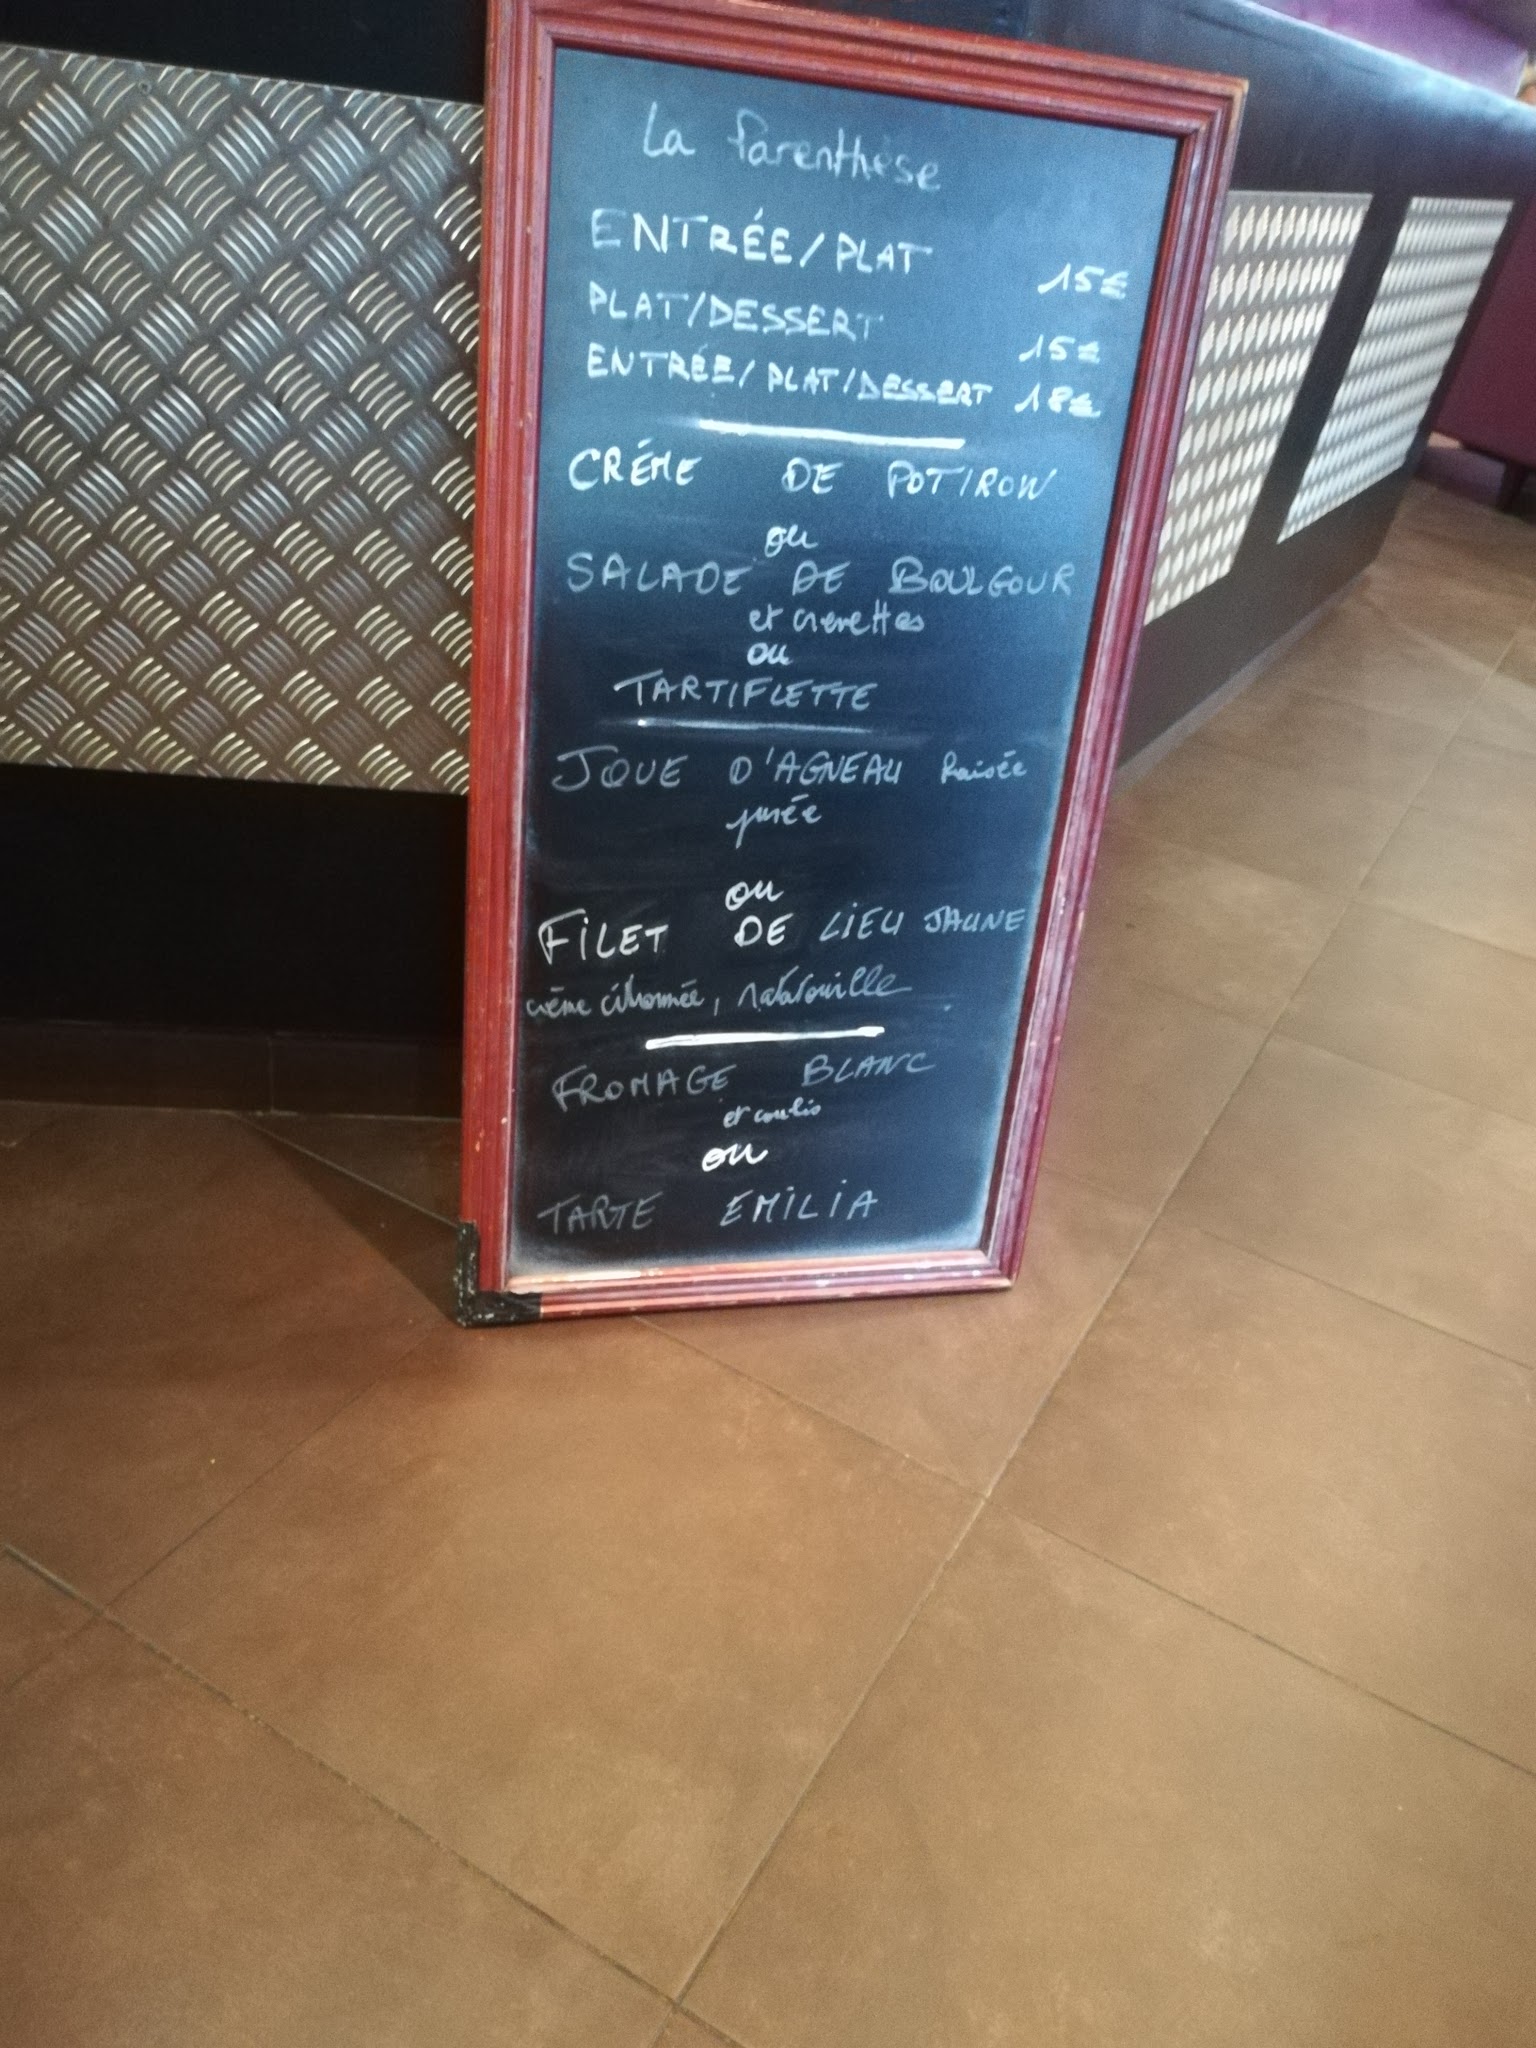 La Parenthèse
ENTRÉE/PLAT 15€
PLAT/DESSERT 15€
ENTRÉE/PLAT/DESSERT 18€
CRÉME DE POTIRON
ou
SALADE DE BOULGOUR
et crevettes
ou
TARTIFLETTE
JOUE D'AGNEAU
purée
ou
FILET DE LIEU JAUNE
crème citronnée, ratatouille
FROMAGE BLANC
et coulis
ou
TARTE EMILIA